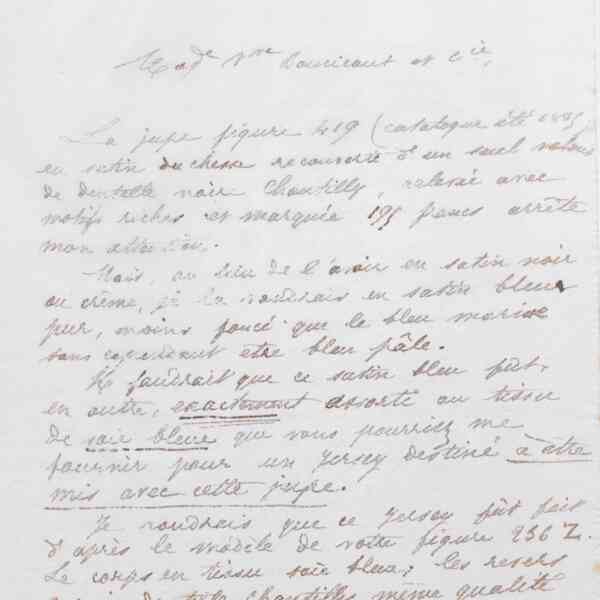 Made Vve Boucicaut et Cie,
La jupe figure 419 (catalogue été 1885)
en satin duchesse recouverte d'un seul volant
de dentelle noir Chantilly, relevé avec
motifs riches et marquée 195 francs arrête
mon attention.
Mais, au lieu de l'avoir en satin noir
ou crème, je la voudrais en satin bleu
pur, moins foncé que le bleu marine
sans cependant être bleu pâle.
Il faudrait que ce satin bleu fût,
en outre, exactement assorti au tissu
de soie bleue que vous pourriez me
fournir pour un jersey destiné à être
mis avec cette jupe.
Je voudrais que ce jersey fût fait
d'après le modèle de votre figure 236 Z.
Le corps en tissu soie bleu; les revers
de Chantilly même qualité